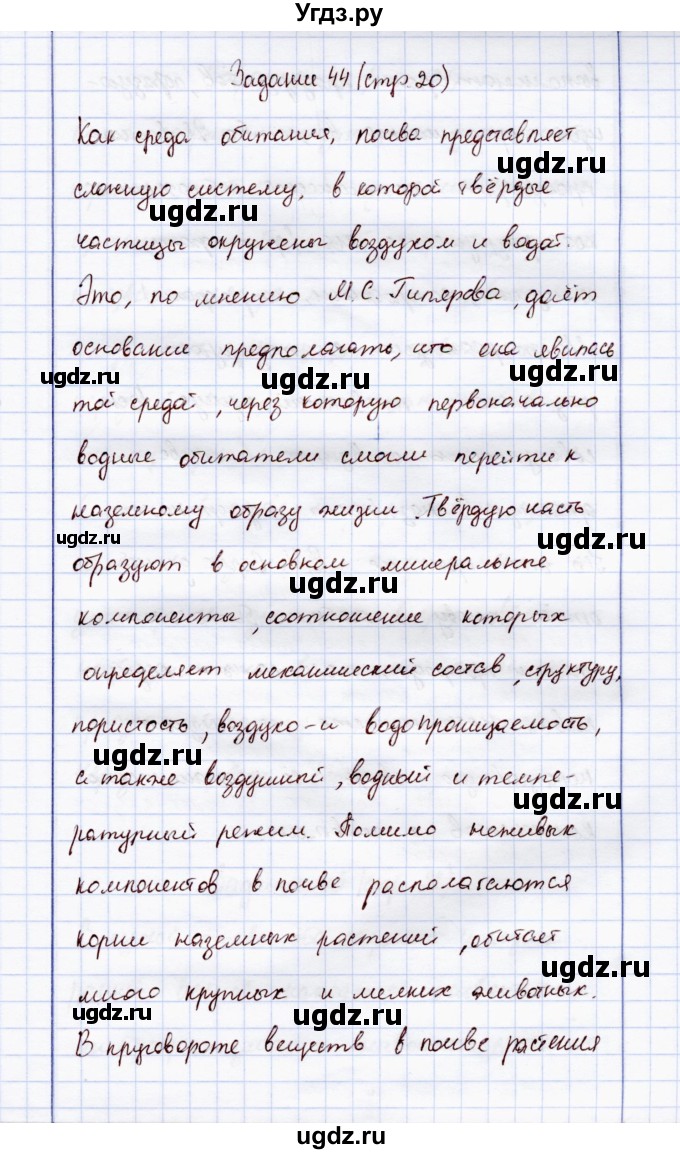 Угдз.ру
Задание 44 (стр. 20)
Как среда обитания, почва представляет
ugdz.ru
сложную систему, в которой твёрдые
ugdz.ru
частицы окружены воздухом и водой.
Это, по мнению М.С. Гилярова, даёт
основание предполагать, что она явилась
ugdz.ru ugdz.ru ugdz.ru
той средой, через которую первоначально
водные обитатели смогли перейти к
наземному образу жизни. Твёрдую часть
ugdz.ru ugdz.ru
образуют в основном минеральные
ugdz.ru
компоненты, соотношение которых
ugdz.ru
определяет механический состав, структуру,
пористость, воздухо- и водопроницаемость,
ugdz.ru
а также воздушный, водный и темпе-
ugdz.ru
ратурный режим. Помимо неживых
ugdz.ru
компонентов в почве располагаются
корни наземных растений, обитает
ugdz.ru
много крупных и мелких животных.
ugdz.ru ugdz.ru
В круговороте веществ в почве растения
ugdz.ru